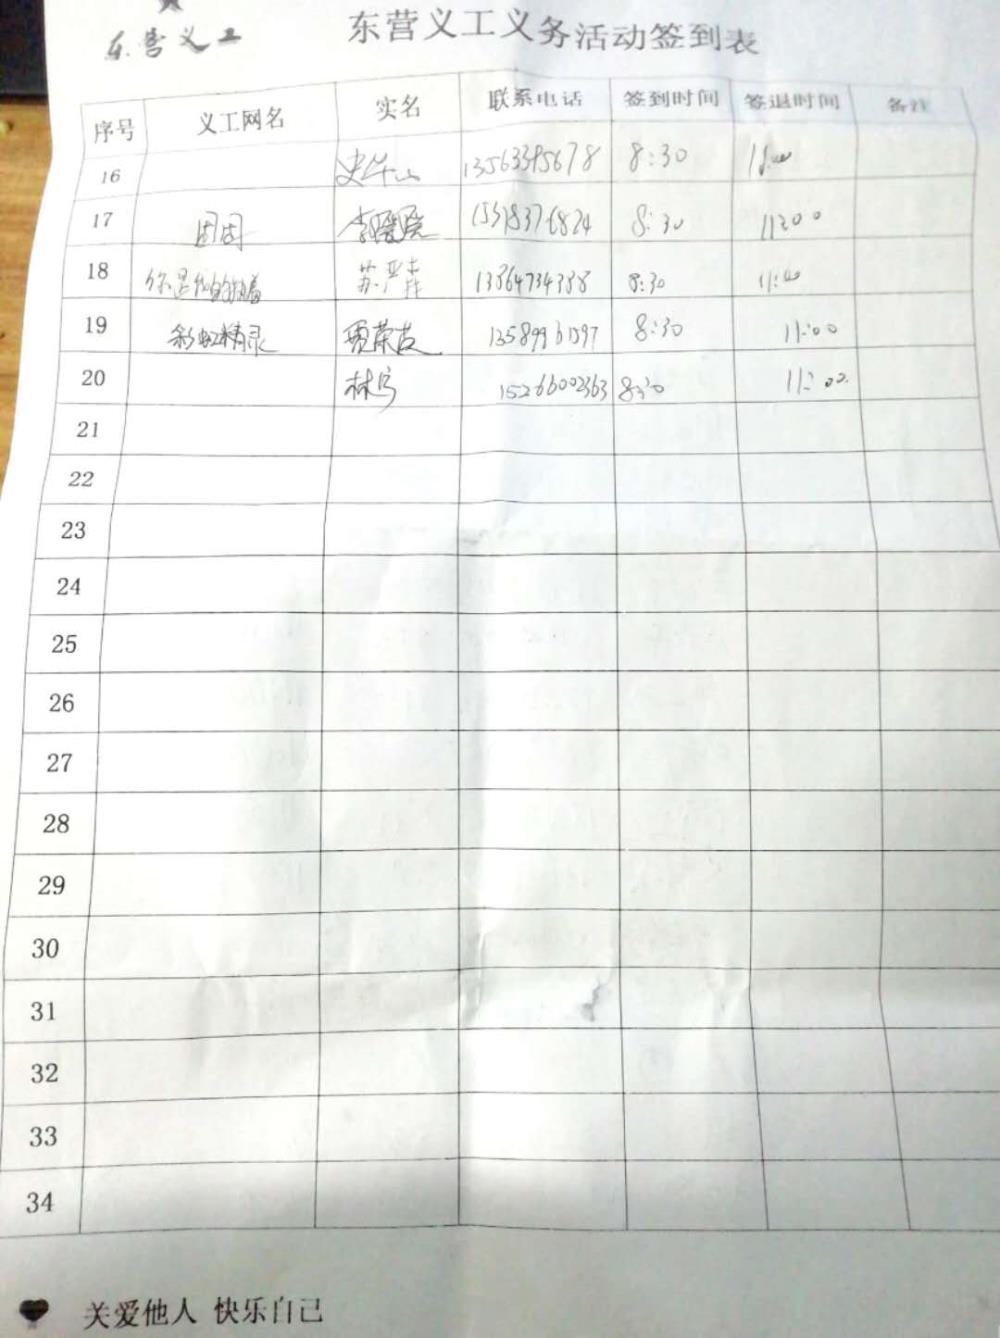 东营义工
东营义工义务活动签到表
序号 义工网名 实名 联系电话 签到时间 签退时间 备注
16 史华山 13563395678 8:30 11:00
17 团团 李 15318376824 8:30 11:00
18 你是我的执着 苏 13864734338 8:30 11:00
19 彩虹精灵 贾荣 13589961397 8:30 11:00
20 林 15266002363 8:30 11:00
21
22
23
24
25
26
27
28
29
30
31
32
33
34
关爱他人 快乐自己